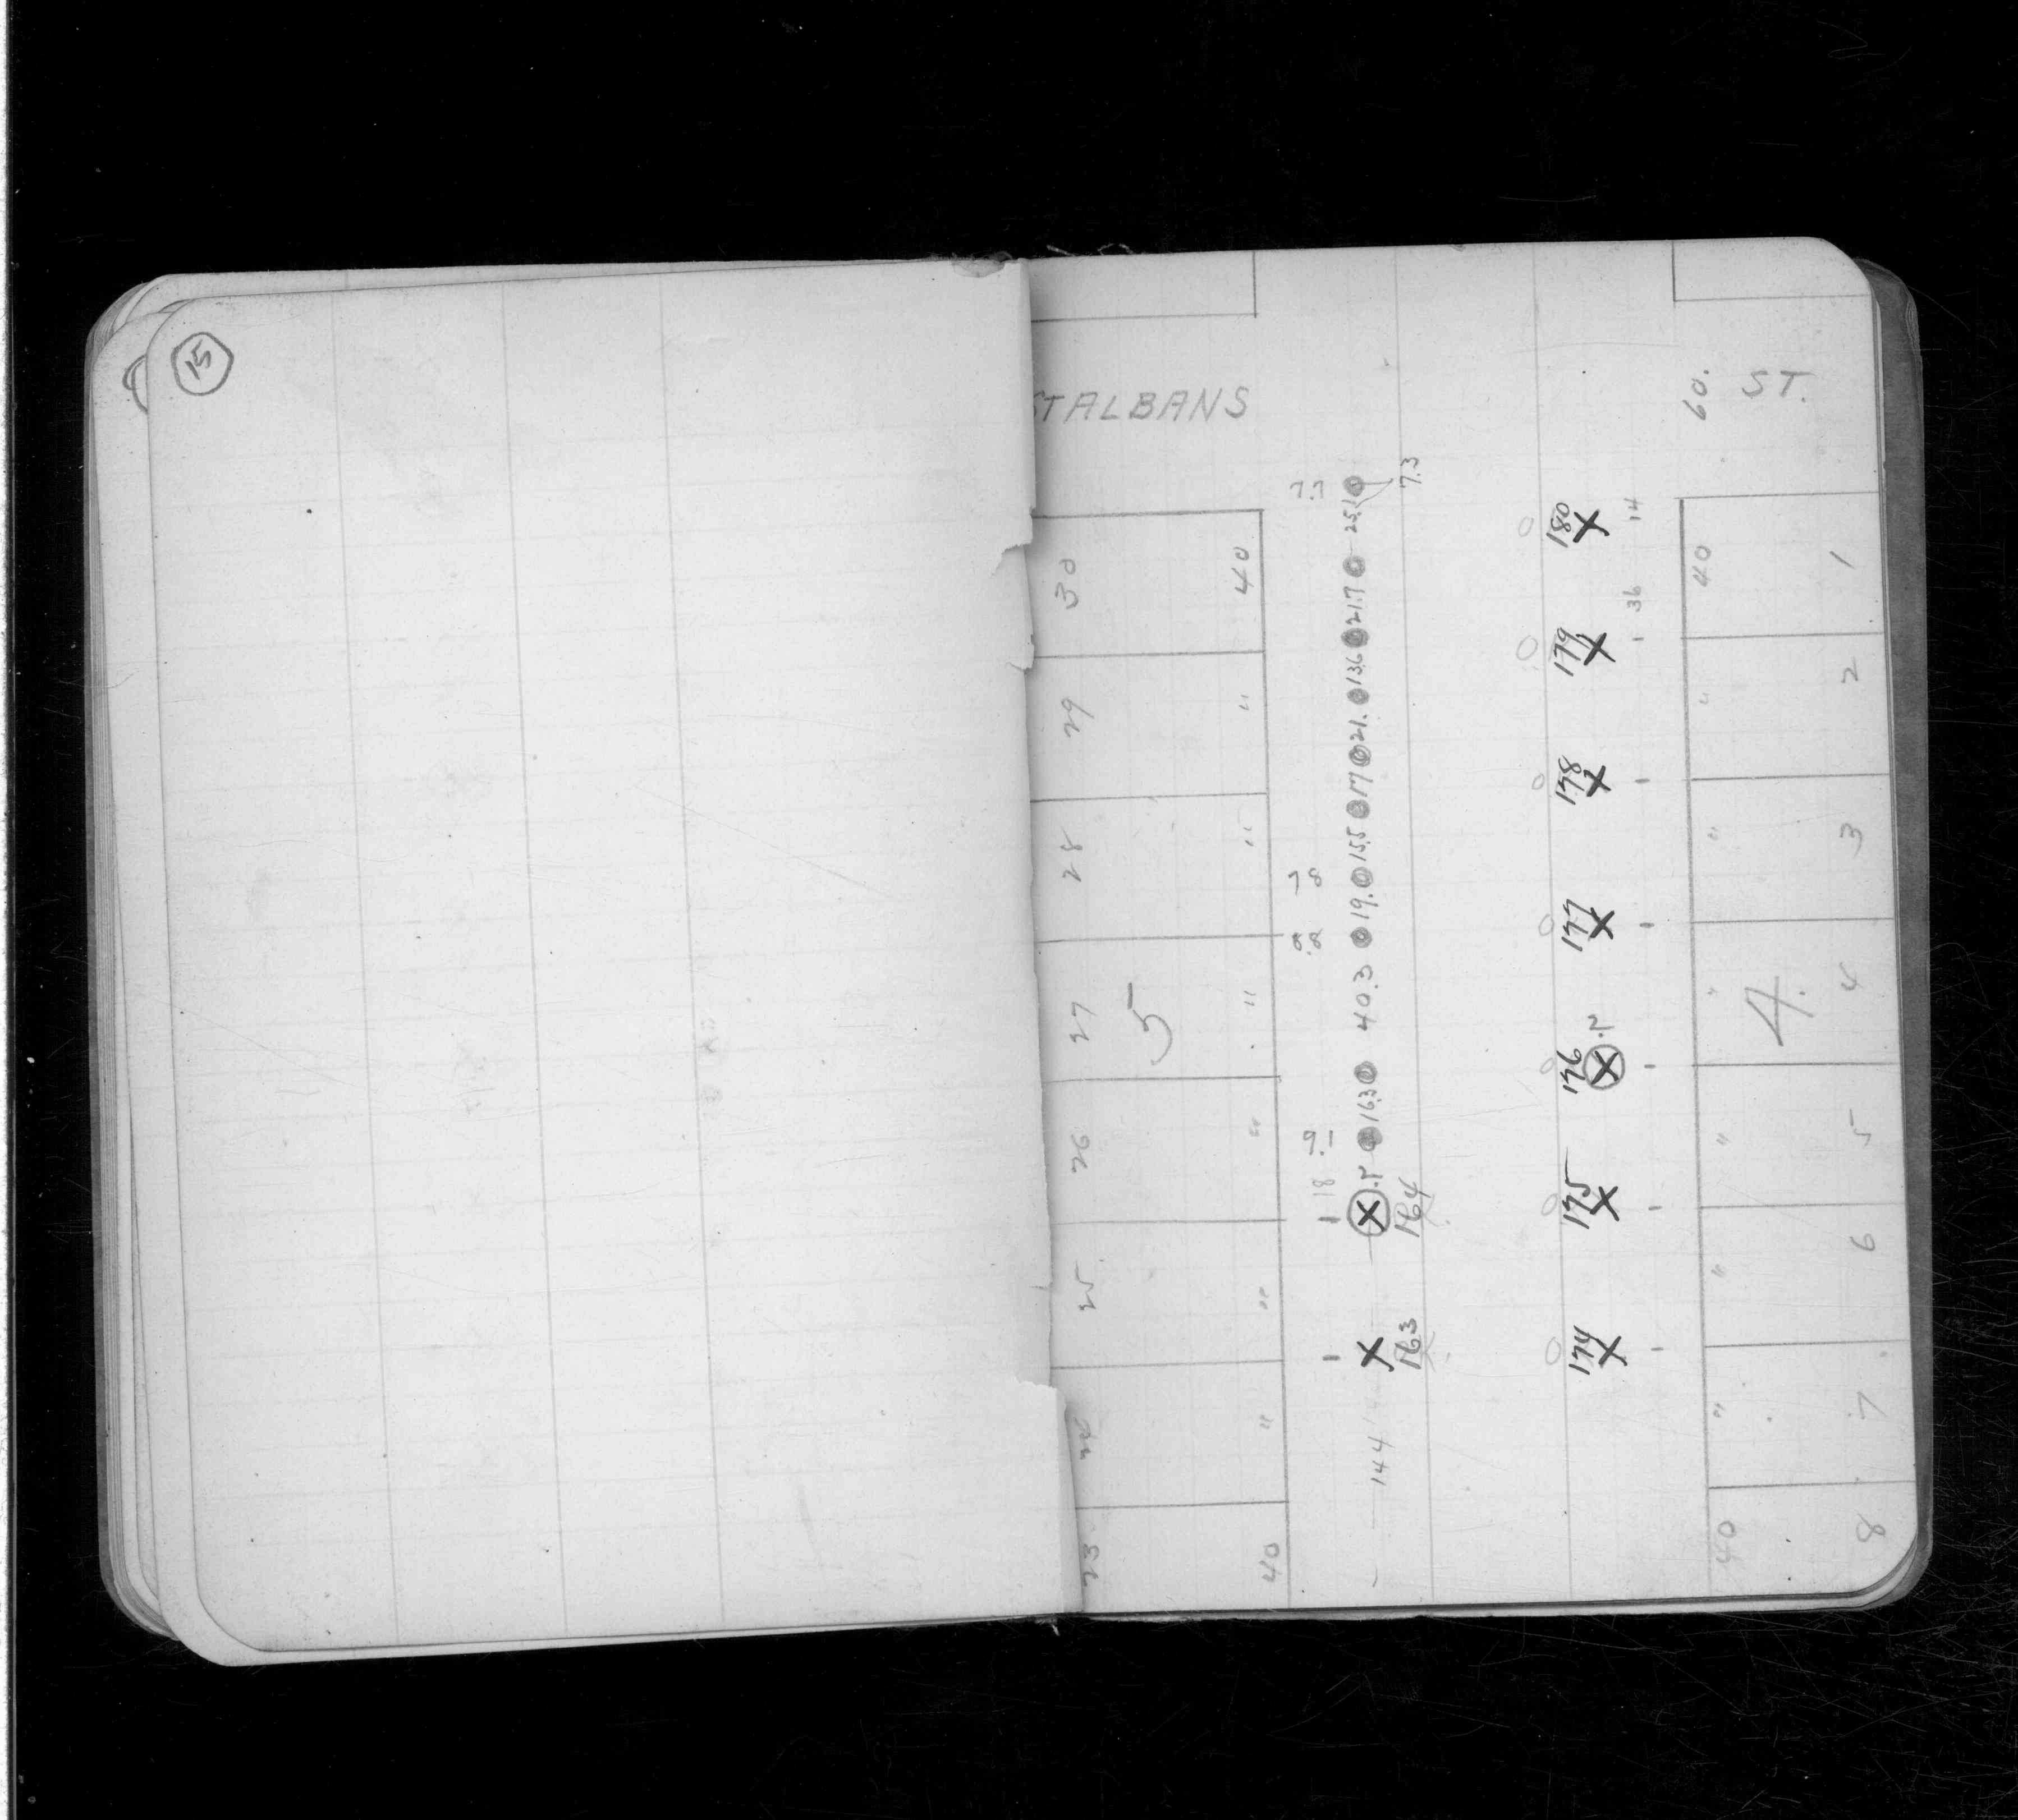 15
STALBANS
60. ST.
30 29 28 27 26 25 24 23
5
40 " " " " " " 40
7.7 78 8.8 9.1 18
25.1 21.7 13.6 21. 17 15.5 19. 40.3 16.3
7.3
164
163
144
180 179 178 177 176 175 174
14 36
40 " " " " " " 40
4.
1 2 3 4 5 6 7 8